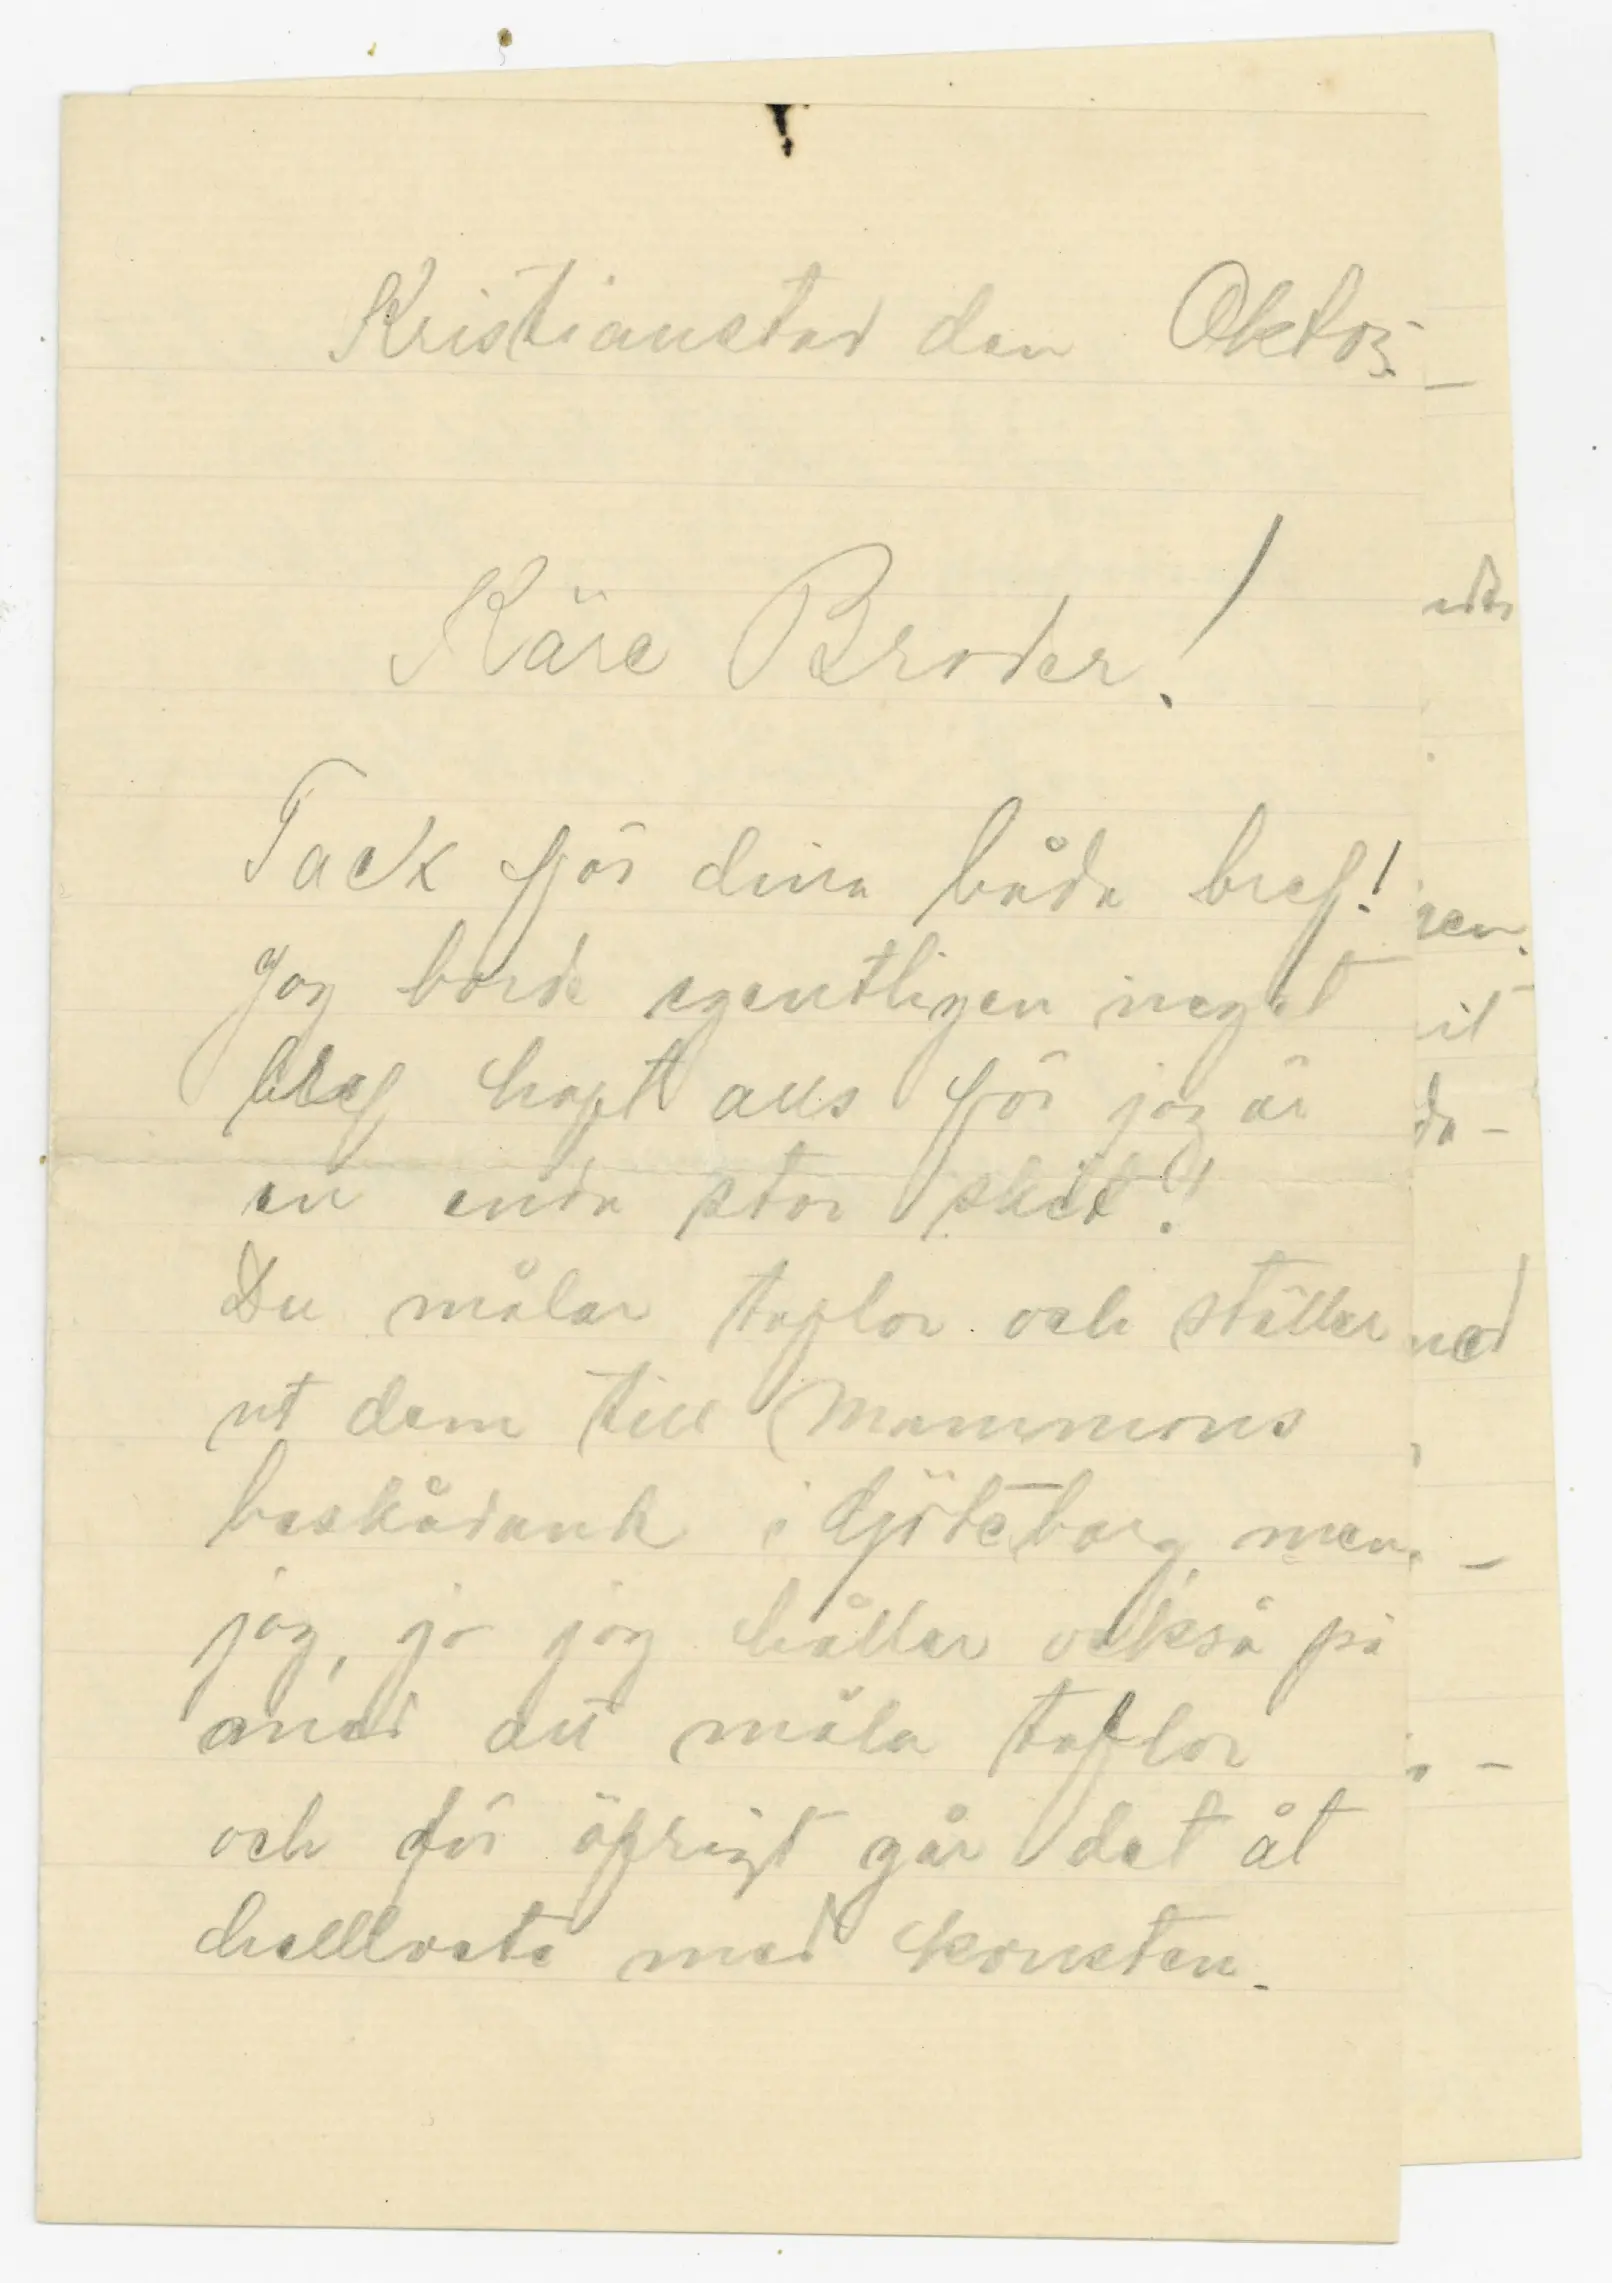 Kristianstad den Oktor.
Käre Broder!
Tack för dina båda bref!
Jag borde egentligen inget
bref haft alls för jag är
en enda stor skit!
Du målar taflor och ställer
ut dem till Mammons
beskådande i Göteborg, men
jag, jo jag håller också på
med att måla taflor
och för öfrigt går det åt
hellvete med konsten.
ned